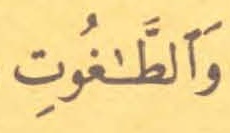 وَٱلطَّـٰغُوتِ